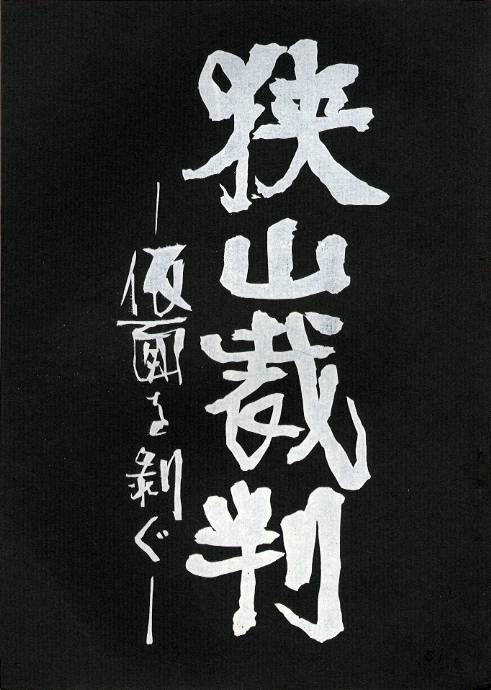 狭山裁判
―仮面を剝ぐ―